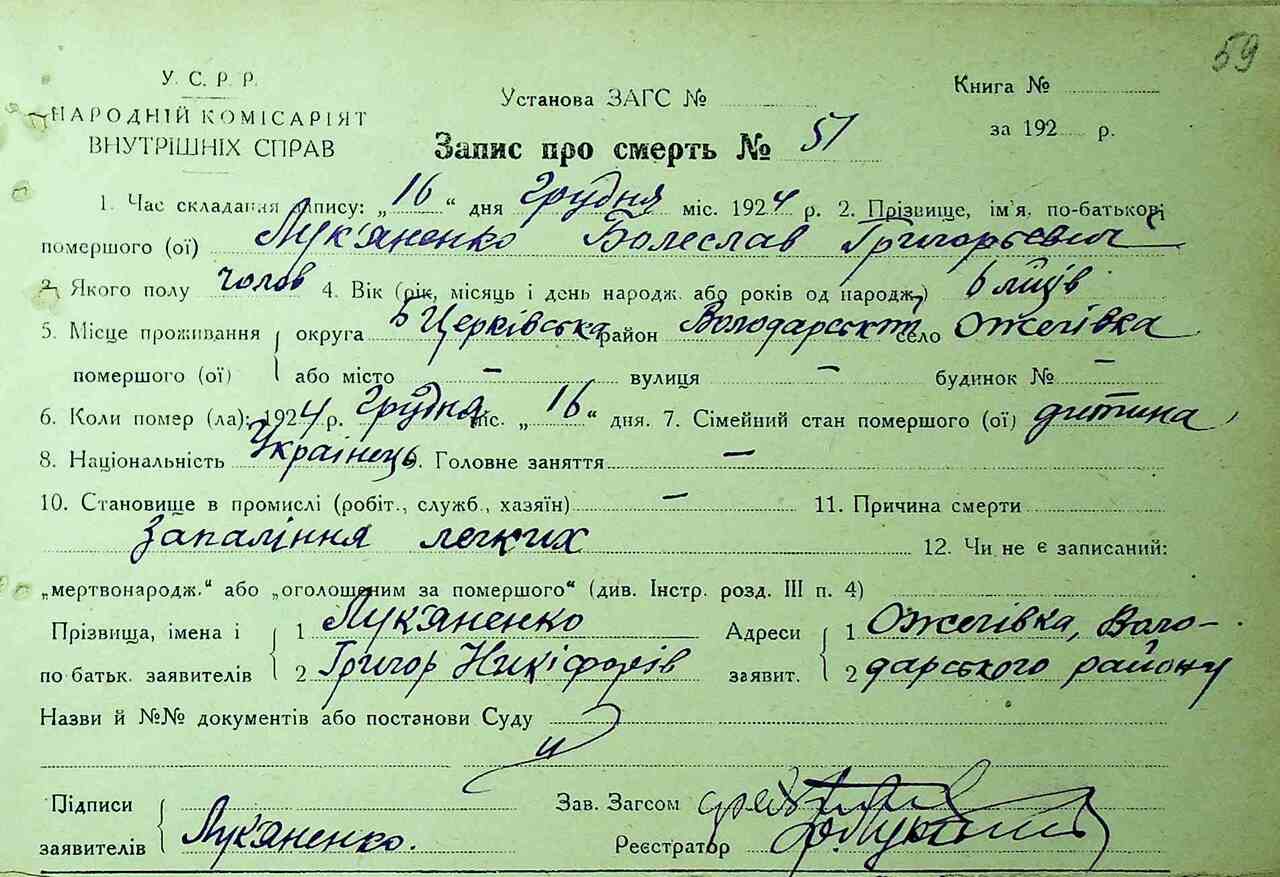 59
У. С. Р. Р.
НАРОДНІЙ КОМІСАРІЯТ
ВНУТРІШНІХ СПРАВ
Установа ЗАГС №
Книга №
за 192 р.
Запис про смерть № 51
1. Час складання запису: „16“ дня Грудня міс. 1924 р. 2. Прізвище, ім'я, по-батькові
помершого (ої) Лук'яненко Болеслав Григорьєвич
3. Якого полу чолов 4. Вік (рік, місяць і день народж. або років од народж.) 6 місців
5. Місце проживання округа Б Церківська район Володарський село Ожегівка
помершого (ої) або місто – вулиця – будинок № –
6. Коли помер (ла): 1924 р. Грудня міс. „16“ дня. 7. Сімейний стан помершого (ої) дитина
8. Національність Українець 9. Головне заняття –
10. Становище в промислі (робіт., служб., хазяїн) – 11. Причина смерти
Запаління легких 12. Чи не є записаний:
„мертвонародж.“ або „оголошеним за помершого“ (див. Інстр. розд. III п. 4)
Прізвища, імена і 1 Лук'яненко Адреси 1 Ожегівка, Воло-
по батьк. заявителів 2 Григор Никіфорів заявит. 2 дарського району
Назви й №№ документів або постанови Суду
Підписи Зав. Загсом
заявителів Лук'яненко. Реєстратор